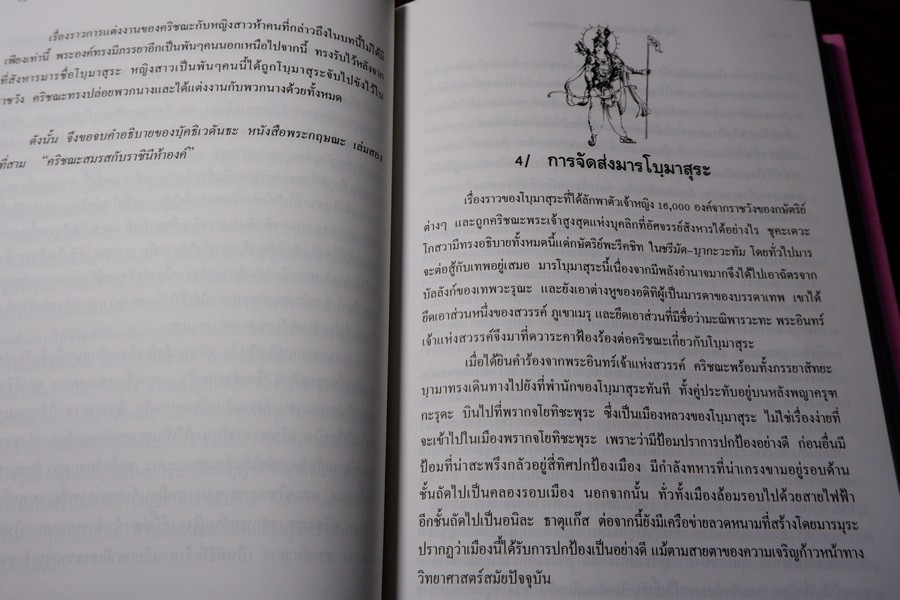 เรื่องราวการแต่งงานของคริชณะกับหญิงสาวห้าคนที่กล่าวถึงในบทนี้ไม่ได้มี
เพียงเท่านี้ พระองค์ทรงมีภรรยาอีกเป็นพันๆคนนอกเหนือไปจากนี้ ทรงรับไว้หลังจาก
ที่สังหารมารชื่อโบฺมาสุระ หญิงสาวเป็นพันๆคนนี้ได้ถูกโบฺมาสุระจับไปขังไว้ใน
ราชวัง คริชณะทรงปล่อยพวกนางและได้แต่งงานกับพวกนางด้วยทั้งหมด
ดังนั้น จึงขอจบคำอธิบายของบฺัคธิเวดันธะ หนังสือพระกฤษณะ เล่มสอง
ที่สาม "คริชณะสมรสกับราชินีห้าองค์"
4/ การจัดส่งมารโบฺมาสุระ
เรื่องราวของโบฺมาสุระที่ได้ลักพาตัวเจ้าหญิง 16,000 องค์จากราชวังของกษัตริย์
ต่างๆ และถูกคริชณะพระเจ้าสูงสุดแห่งบุคลิกที่อัศจรรย์สังหารได้อย่างไร ชุคะเดวะ
โกสวามีทรงอธิบายทั้งหมดนี้แด่กษัตริย์พะรีคชิท ในชรีมัด-บฺากะวะทัม โดยทั่วไปมาร
จะต่อสู้กับเทพอยู่เสมอ มารโบฺมาสุระนี้เนื่องจากมีพลังอำนาจมากจึงได้ไปเอาฉัตรจาก
บัลลังก์ของเทพวะรุณะ และยังเอาต่างหูของอดิทิผู้เป็นมารดาของบรรดาเทพ เขาได้
ยึดเอาส่วนหนึ่งของสวรรค์ ภูเขาเมรุ และยึดเอาส่วนที่มีชื่อว่ามะณิพารวะทะ พระอินทร์
เจ้าแห่งสวรรค์จึงมาที่ดวาระคาฟ้องร้องต่อคริชณะเกี่ยวกับโบฺมาสุระ
เมื่อได้ยินคำร้องจากพระอินทร์เจ้าแห่งสวรรค์ คริชณะพร้อมทั้งภรรยาสัทยะ
บฺามาทรงเดินทางไปยังที่พำนักของโบฺมาสุระทันที ทั้งคู่ประทับอยู่บนหลังพญาครุฑ
กะรุดะ บินไปที่พรากจโยทิชะพุระ ซึ่งเป็นเมืองหลวงของโบฺมาสุระ ไม่ใช่เรื่องง่ายที่
จะเข้าไปในเมืองพรากจโยทิชะพุระ เพราะว่ามีป้อมปราการปกป้องอย่างดี ก่อนอื่นมี
ป้อมที่น่าสะพรึงกลัวอยู่สี่ทิศปกป้องเมือง มีกำลังทหารที่น่าเกรงขามอยู่รอบด้าน
ชั้นถัดไปเป็นคลองรอบเมือง นอกจากนั้น ทั่วทั้งเมืองล้อมรอบไปด้วยสายไฟฟ้า
อีกชั้นถัดไปเป็นอนิละ ธาตุแก๊ส ต่อจากนี้ยังมีเครือข่ายลวดหนามที่สร้างโดยมารมุระ
ปรากฏว่าเมืองนี้ได้รับการปกป้องเป็นอย่างดี แม้ตามสายตาของความเจริญก้าวหน้าทาง
วิทยาศาสตร์สมัยปัจจุบัน